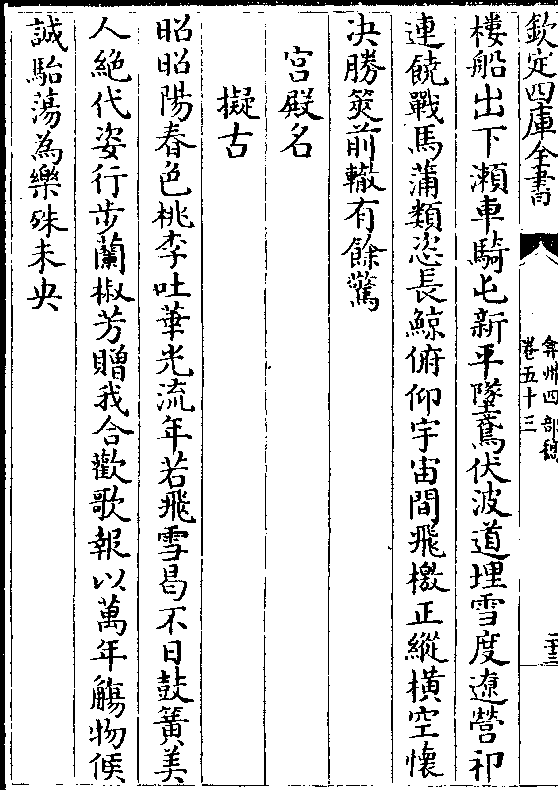 欽定四庫全書
弇州四部稿
卷五十三
二十三
樓船出下瀬車騎屯新平墜鳶伏波道埋雪度遼營祁
連饒戰馬蒲類恣長鯨俯仰宇宙間飛檄正縱橫空懷
决勝筴前轍有餘驚
宮殿名
擬古
昭昭陽春色桃李吐華光流年若飛雪曷不日鼓簧美
人絶代姿行步蘭椒芳贈我合歡歌報以萬年觴物候
誠駘蕩為樂殊未央